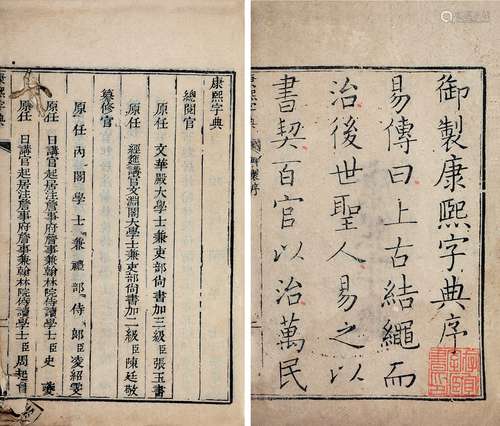 御製康熙字典序
易傳曰上古結繩而
治後世聖人易之以
書契百官以治萬民
康熙字典
總閱官
原任文華殿大學士兼吏部尚書加三級臣張玉書
原任經筵講官文淵閣大學士兼吏部尚書加二級臣陳廷敬
纂修官
原任內閣學士兼禮部侍郎臣凌紹雯
原任日講官起居注詹事府詹事兼翰林院侍讀學士臣史夔
原任日講官起居注詹事府詹事兼翰林院侍讀學士臣周起渭
康熙字典